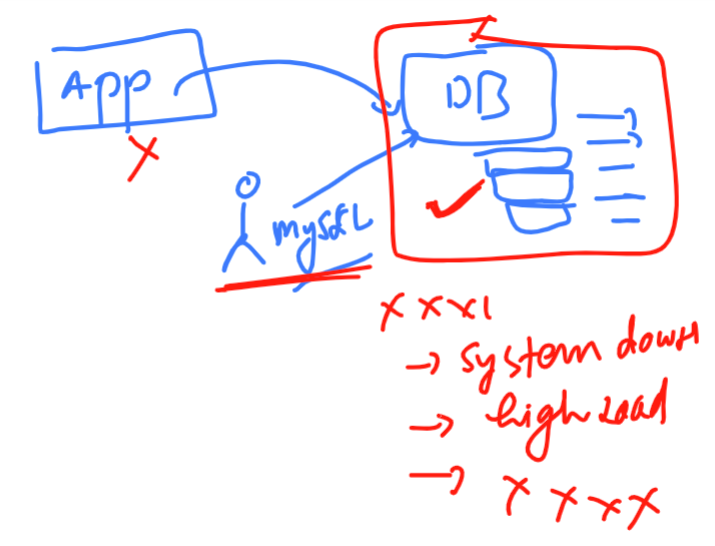 App
DB
mysql
x x x x
→ system down
→ high load
→ x x x x